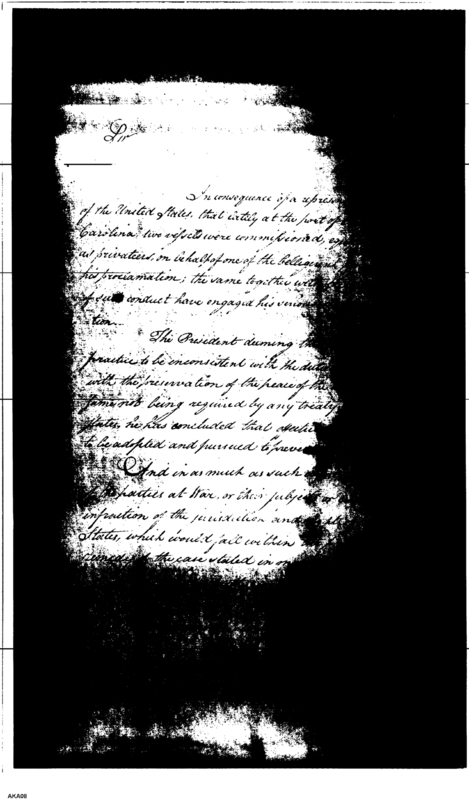 Sir
In consequence of a repres
of the United States, that lately at the port of
Carolina, two vessels were commissioned, eq
as privateers, on behalf of one of the Belligerent
his proclamation; the same together with
of such conduct have engaged his serious
tion.
The President deeming th
practice to be inconsistent with the duti
with the preservation of the peace of the
same not being required by any treaty
States, he has concluded that
to be adopted and pursued to preven
And in as much as such
the parties at War, or their subjects or
infraction of the jurisdiction and
States, which would fall within
the case stated in
AKA08